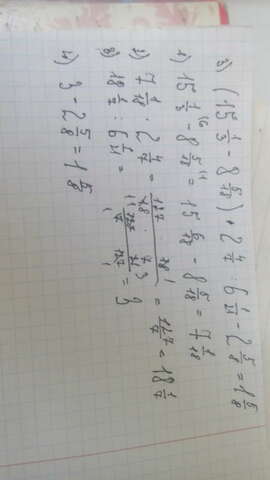 3) (15 1/3 - 8 5/18) · 2 4/7 : 6 1/21 - 2 5/8 = 1 5/8
1) 15 1/3 (6 - 8 5/18 (1 = 15 6/18 - 8 5/18 = 7 1/18
2) 7 1/18 · 2 4/7 = 127/18 · 18/7 = 127/7 = 18 1/7
3) 18 1/7 : 6 1/21 = 127/7 · 21/127 = 3
4) 3 - 2 5/8 = 1 5/8